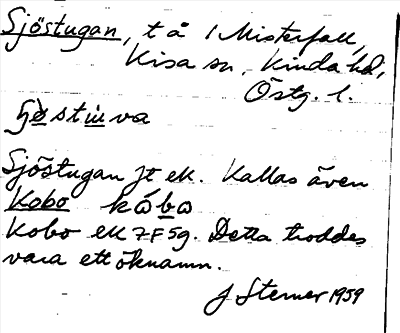 Sjöstugan, t å 1 Misterfall,
Kisa sn, Kinda hd,
Östg. l.
Sjöstugan Jt ek. Kallas även
Kobo kóbo
Kobo ek 7F5g. Detta troddes
vara ett öknamn.
J Sterner 1959